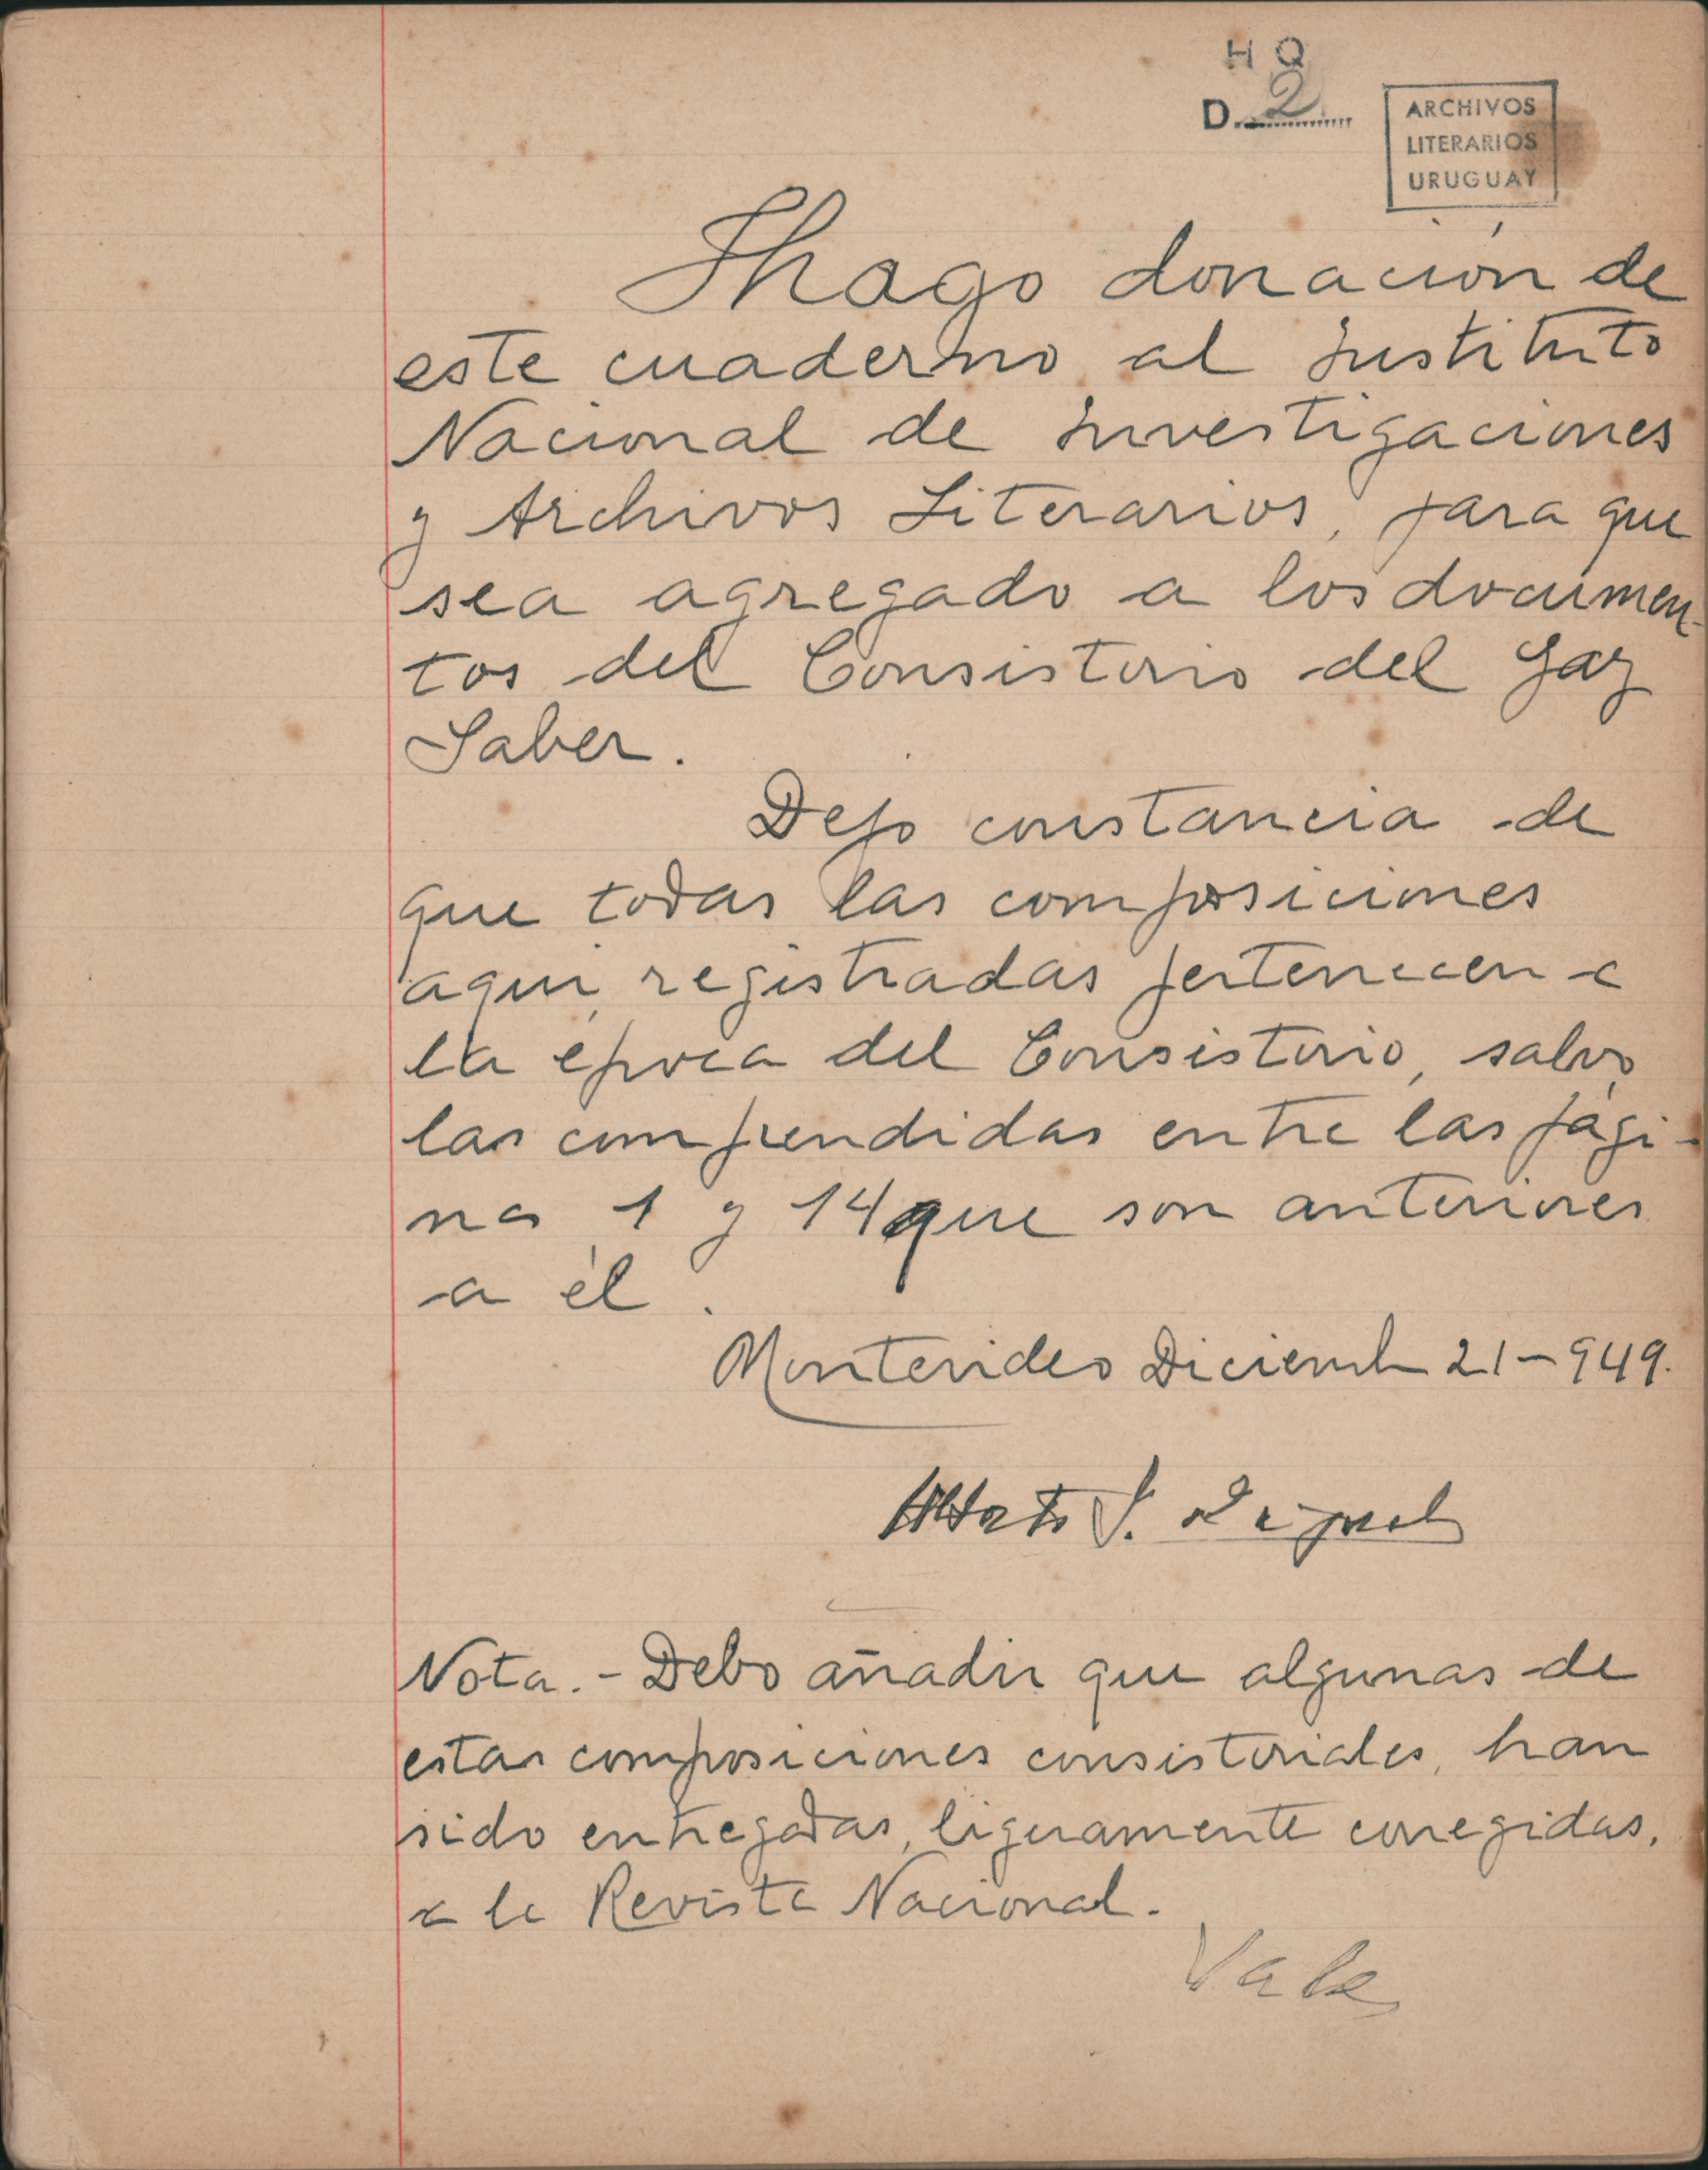 H Q
D. 2
ARCHIVOS
LITERARIOS
URUGUAY
Hago donación de
este cuaderno al Instituto
Nacional de Investigaciones
y Archivos Literarios, para que
sea agregado a los documen-
tos del Consistorio del Gay
Saber.
Dejo constancia de
que todas las composiciones
aquí registradas pertenecen a
la época del Consistorio, salvo
las comprendidas entre las pági-
nas 1 y 14 que son anteriores
a él.
Montevideo Diciembre 21-949.
Alberto J.
Nota.- Debo añadir que algunas de
estas composiciones consistoriales, han
sido entregadas, ligeramente corregidas,
a la Revista Nacional.
Vale